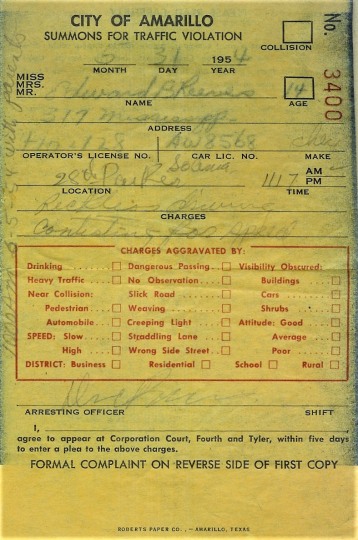 CITY OF AMARILLO
SUMMONS FOR TRAFFIC VIOLATION
COLLISION
No. 3400
5 31 1954
MONTH DAY YEAR
MISS
MRS.
MR. Edward B Reeves 14
NAME AGE
317 Mississippi
ADDRESS
128 AW 8568
OPERATOR'S LICENSE No. CAR LIC. No. MAKE
28th 1117 AM
PM
LOCATION TIME
CHARGES
CHARGES AGGRAVATED BY:
Drinking Dangerous Passing Visibility Obscured:
Heavy Traffic No Observation Buildings
Near Collision: Slick Road Cars
Pedestrian Weaving Shrubs
Automobile Creeping Light Attitude: Good
SPEED: Slow Straddling Lane Average
High Wrong Side Street Poor
DISTRICT: Business Residential School Rural
ARRESTING OFFICER SHIFT
I,
agree to appear at Corporation Court, Fourth and Tyler, within five days
to enter a plea to the above charges.
FORMAL COMPLAINT ON REVERSE SIDE OF FIRST COPY
ROBERTS PAPER CO., — AMARILLO, TEXAS